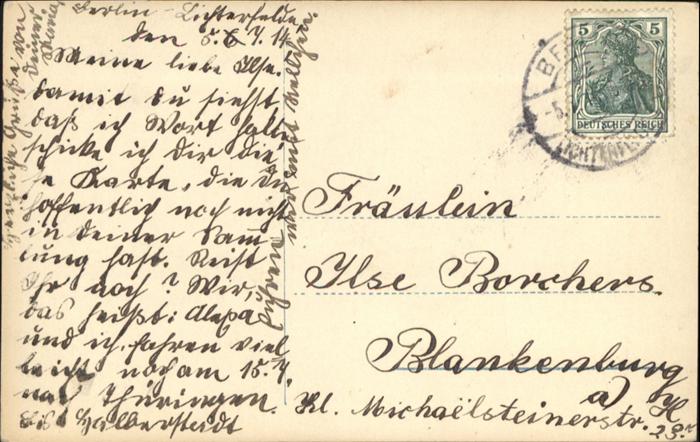 Berlin-Lichterfelde
den 5. 7. 14.
Meine liebe Ilse.
Damit du siehst
daß ich Wort halte
schicke ich dir die
se Karte, die du
hoffentlich noch nicht
in deiner Sam
lung hast. Reist
Ihr noch? Wir,
das heißt: Alexa
und ich, fahren viel
leicht noch am 15. 7.
nach Thüringen.
Bis Halberstadt
fahren
Grüße von
deiner
5
5
DEUTSCHES REICH
LICHTERFELDE
Fräulein
Ilse Borchers.
Blankenburg
a/H
Kl. Michaëlsteinerstr. 23.